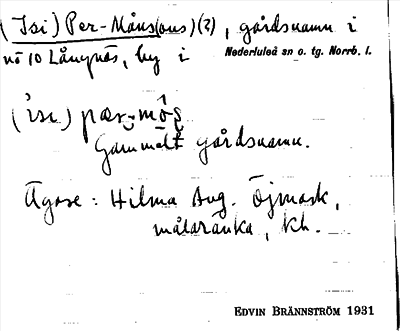 (Isi) Per-Måns(ons)(?), gårdsnamn i
nö 10 Långnäs, by i Nederluleå sn o. tg. Norrb. l.
Gammalt gårdsnamn.
Ägare: Hilma Aug. Öjmark,
målaränka, kh.
EDVIN BRÄNNSTRÖM 1931